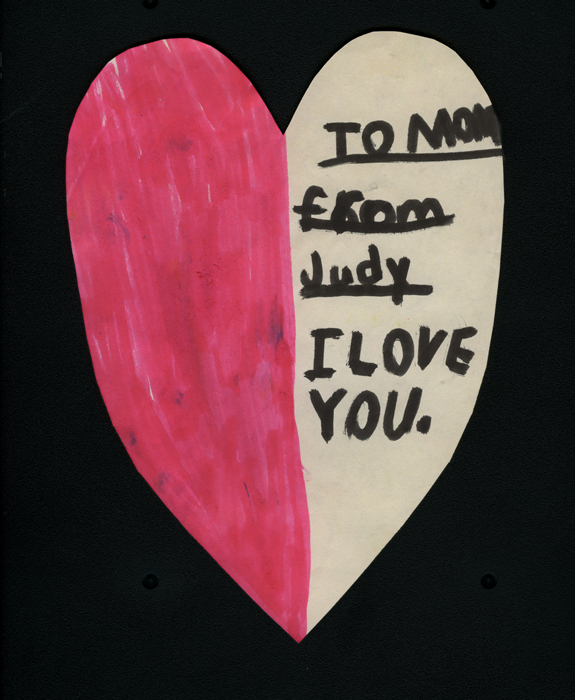 TO MOM
from
Judy
I LOVE
YOU.